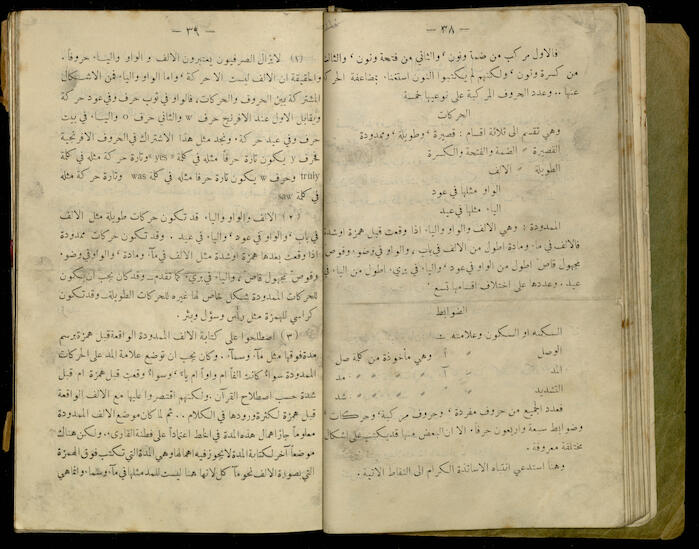 — ٣٨ —
فالاول مركب من ضمة ونون ، والثاني من فتحة ونون ، والثالث
من كسرة ونون ، ولكنهم لم يكتبوا النون استغناء بمضاعفة الحركة
عنها .. وعدد الحروف المركبة على نوعيها خمسة
الحركات
وهي تقسم الى ثلاثة اقسام : قصيرة ، وطويلة ، وممدودة
القصيرة » الضمة والفتحة والكسرة
الطويلة » الالف
الواو مثلها في عود
الياء مثلها في عيد
الممدودة : وهي الالف والواو والياء اذا وقعت قبل همزة او شدة
فالالف في ماء ومادة اطول من الالف في باب ، والواو في وضوء وقوص
مجهول قاص اطول من الواو في عود ، والياء في بريء اطول من الياء في
عيد . وعددها على اختلاف اقسامها تسع .
الضوابط
السكنه او السكون وعلامته
الوصل » أ وهي مأخوذة من كلمة صل
المد » آ » » » » مد
التشديد » » » » » شد
فعدد الجميع من حروف مفردة ، وحروف مركبة ، وحركات ،
وضوابط سبعة واربعون حرفاً. الا ان البعض منها قد يكتب على اشكال
مختلفة معروفة .
وهنا استدعي انتباه الاساتذة الكرام الى النقاط الاتية .
— ٣٩ —
(١) لا يزال الصرفيون يعتبرون الالف والواو والياء حروفاً.
والحقيقة ان الالف ليست الا حركة ، واما الواو والياء فمن الاشكال
المشتركة بين الحروف والحركات، فالواو في ثوب حرف وفي عود حركة
ويقابل الاول عند الافرنج حرف w والثاني حرف o والياء في بيت
حرف وفي عيد حركة. ونجد مثل هذا الاشتراك في الحروف الافرنجية
فحرف y يكون تارة حرفاً مثله في كلمة «yes» وتارة حركة مثله في كلمة
truly وحرف w يكون تارة حرفا مثله في كلمة was وتارة حركة مثله
في كلمة saw
(٢) الالف والواو والياء قد تكون حركات طويلة مثل الالف
في باب ، والواو في عود ، والياء في عيد . وقد تكون حركات ممدودة
اذا وقعت بعدها همزة او شدة مثل الالف في ماء ومادة ، والواو في وضوء
وقوص مجهول قاص ، والياء في بريء كما تقدم — وقد كان يجب ان يكون
للحركات الممدودة شكل خاص لها غيره للحركات الطويلة — وقد تكون
كراسي للهمزة مثل رأس وسؤل وبئر .
(٣) اصطلحوا على كتابة الالف الممدودة الواقعة قبل همزة برسم
مدة فوقها مثل مآء وسمآء . وكان يجب ان توضع علامة المد على الحركات
الممدودة سواء كانت الفاً ام واواً ام ياء ، وسواء وقعت قبل همزة ام قبل
شدة حسب اصطلاح القرآن . ولكنهم اقتصروا عليها مع الالف الواقعة
قبل همزة لكثرة ورودها في الكلام .. ثم لما كان موضع الالف الممدودة
معلوماً جاز اهمال هذه المدة في الخط اعتماداً على فطنة القارئ . ولكن هناك
موضعاً آخر لكتابة المدة لا يجوز فيه اهمالها وهي المدة التي تكتب فوق الهمزة
التي بصورة الالف نحو مآكل لانها هنا ليست للمد مثلها في مآء وعلماء وانما هي